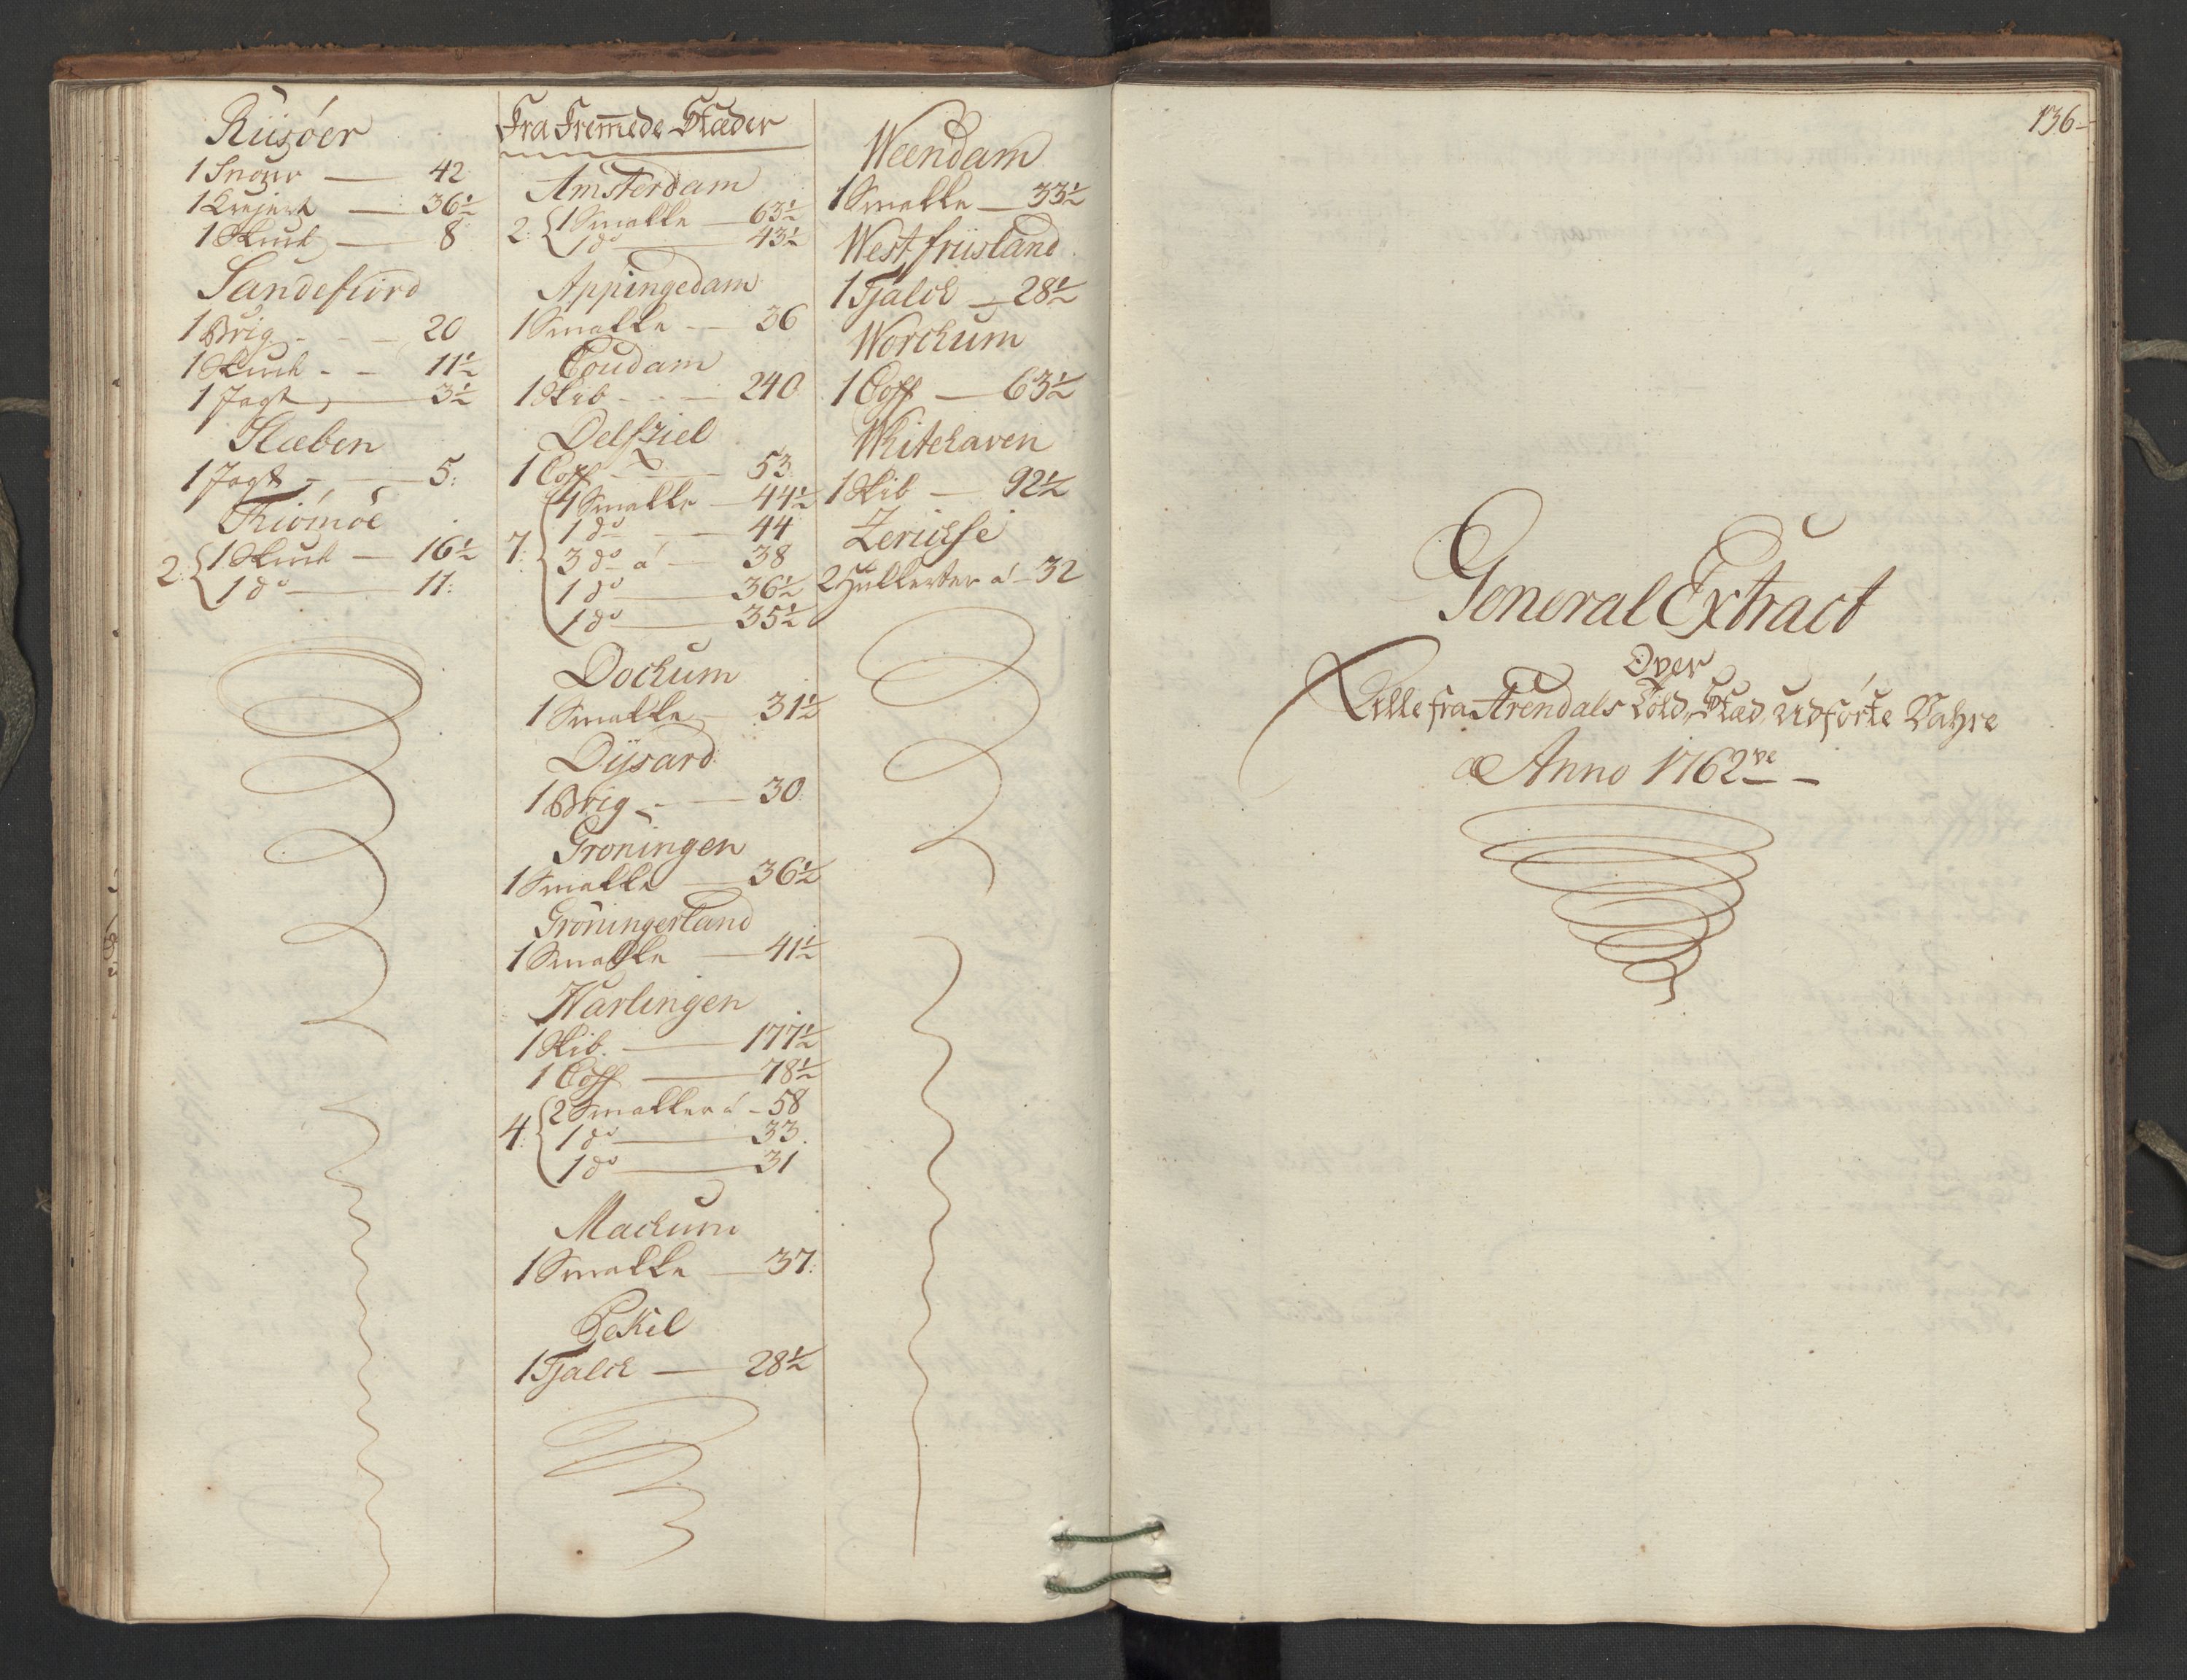 Riisöer
1 Snauv — 42
1 Krejert — 36½
1 Skuck — 8
Sandefiord
1 Brig - - - 20
1 Skuck - - 11½
1 Jagt, — 3½
Slæben
1 Jagt - - — 5:
Tiömöe
2: { 1 Skuck — 16½
1 do — 11:
Fra Fremede Stæder
Amsterdam
2: { 1 Smakke — 63½
1 do — 43½
Appingedam
1 Smakke - — 36
Coudam
1 Skib - - — 240
Delfziel
1 Coff - — 53
7: { 1 Smakke — 44½
1 do — 44
3 do á — 38
1 do — 36½
1 do — 35½
Dockum
1 Smakke — 31½
Dÿsard
1 Brig - — 30
Gröningen
1 Smakke — 36½
Gröningerland
1 Smakke — 41½
Harlingen
1 Skib. — 177½
1 Coff — 78½
4: { 2 Smakker á - 58
1 do — 33.
1 do — 31
Mackum
1 Smakke — 37:
Pekil
1 Tjalck — 28½
Weendam
1 Smakke — 33½
West friisland
1 Tjalck — 28½
Worckum
1 Coff — 63½
Whitehaven
1 Skib — 92½
Zerichse
2 Hukkerter á - 32
136-
General Extract
Over
Alle fra Arendals Told-Stæd udförte Vahre
Anno 1762ve